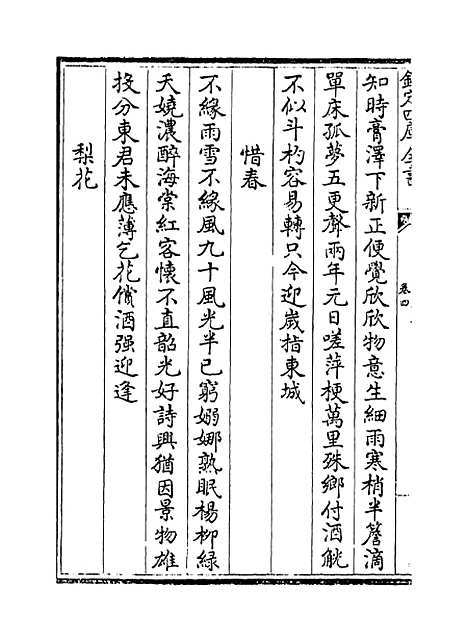 欽定四庫全書
卷四
知時膏澤下新正便覺欣欣物意生細雨寒梢半簷滴
單床孤夢五更聲兩年元日嗟萍梗萬里殊鄉付酒觥
不似斗杓容易轉只今迎嵗指東城
惜春
不緣雨雪不緣風九十風光半已窮嫋娜熟眠楊柳緑
夭嬈濃醉海棠紅客懷不直韶光好詩興猶因景物雄
投分東君未應薄乞花償酒强迎逢
梨花